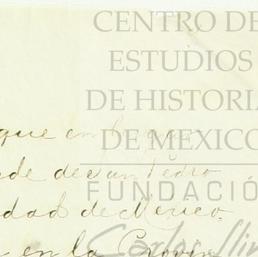 CENTRO DE
ESTUDIOS
DE HISTORIA
DE MEXICO
FUNDACIÓN
Carlos Slim
que en
de de San Pedro
dad de Mexico.
en la